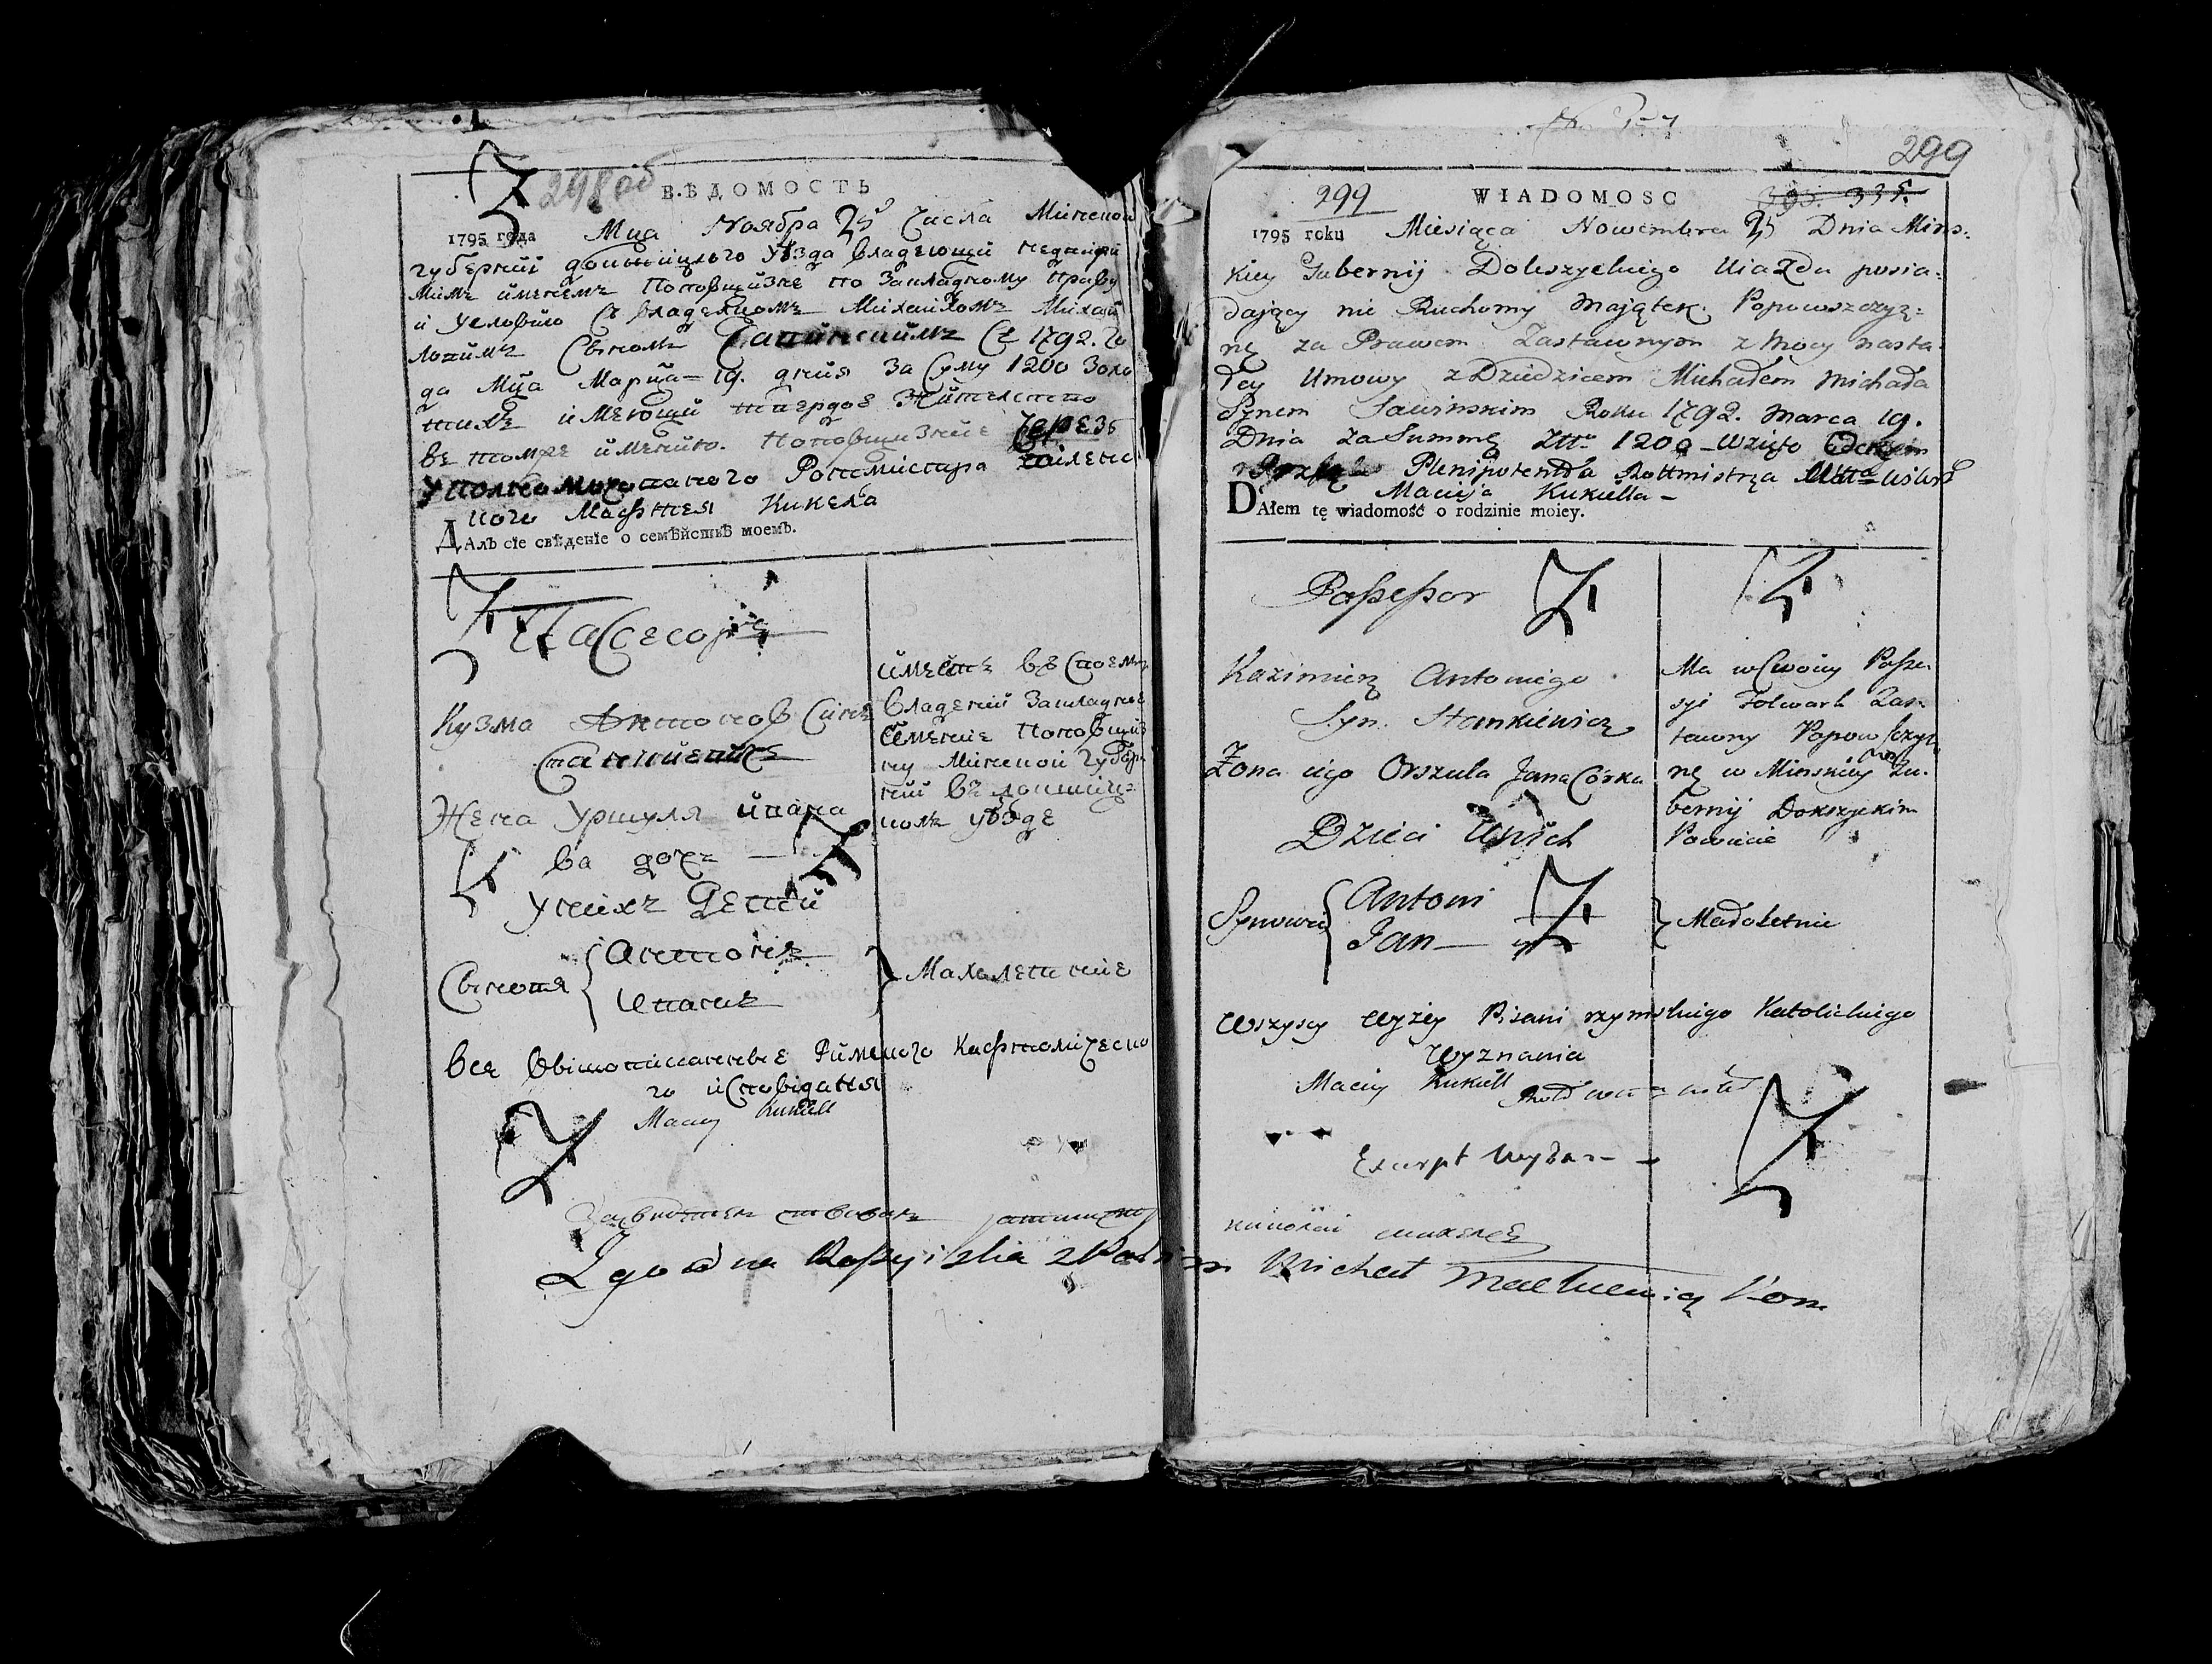 298 об
ВѢДОМОСТЬ
1795 года Мца Ноября 25 Числа Минской
губернии докшицкого уѣзда владеющий недвижи
мимъ имениемъ Поповщизне по закладному праву
и условию съ владелцомъ Михайломъ Михай
ловимъ сыномъ Савинскимъ съ 1792. го
да Мца Марца 19. дния за суму 1200 золо
тихъ имеющи твердое жителство
въ томже имению. Поповщизние Черезъ
уполномоченаго Ротмистра
ного Мафтея Кикела
ДАлъ сіе свѣденіе о семѣйствѣ моемъ.
Пасесоръ
Кузма Антоновъ Синъ
Станкевичъ
Жена Уршуля ивана
ва дочь —
У нихъ Детей
Синовя { Антони
Иванъ } Малолетние
имеетъ въ своемъ
владении Закладное
имение Поповщиз
ну Минской Губер
нии въ докшиц=
комъ уѣзде
Все Вышописанные Римского Кафтолическо
го исповідания
Maciey Kukiell
Zgodna Rossyiska z Polskim Michał Mackiewicz Kom
299
299
WIADOMOSC
395. 335.
1795 roku Miesiąca Nowembra 25 Dnia Mins=
kiey Gubernij Dokszyckiego Uiazdu posia=
dający nie Ruchomy Majątek Popowszczyz=
nę za Prawem Zastawnym z Mocy nasta=
łey Umowy z Dziedzicem Michałem Michała
Synem Sawinskim Roku 1792. Marca 19.
Dnia za Summę Złł. 1200 wziąto
Plenipotenta Rottmistrza
Macieja Kukiełła —
DAłem tę wiadomość o rodzinie moiey.
Possessor
Kazimierz Antoniego
Syn. Stankiewicz
Żona iego Orszula Jana Córka
Dzieci U nich
Synowie { Antoni
Jan — } Małoletnie
Ma w Swoiey Posse=
syi Folwark Zas=
tawny Popowszczyz=
nę w Minskiey Gu=
bernij Dokszyckim
Powiecie
Wszyscy Wyżey Pisani rzymskiego Katolickiego
Wyznania
Maciey Kukiell
Excerpt Wydan —